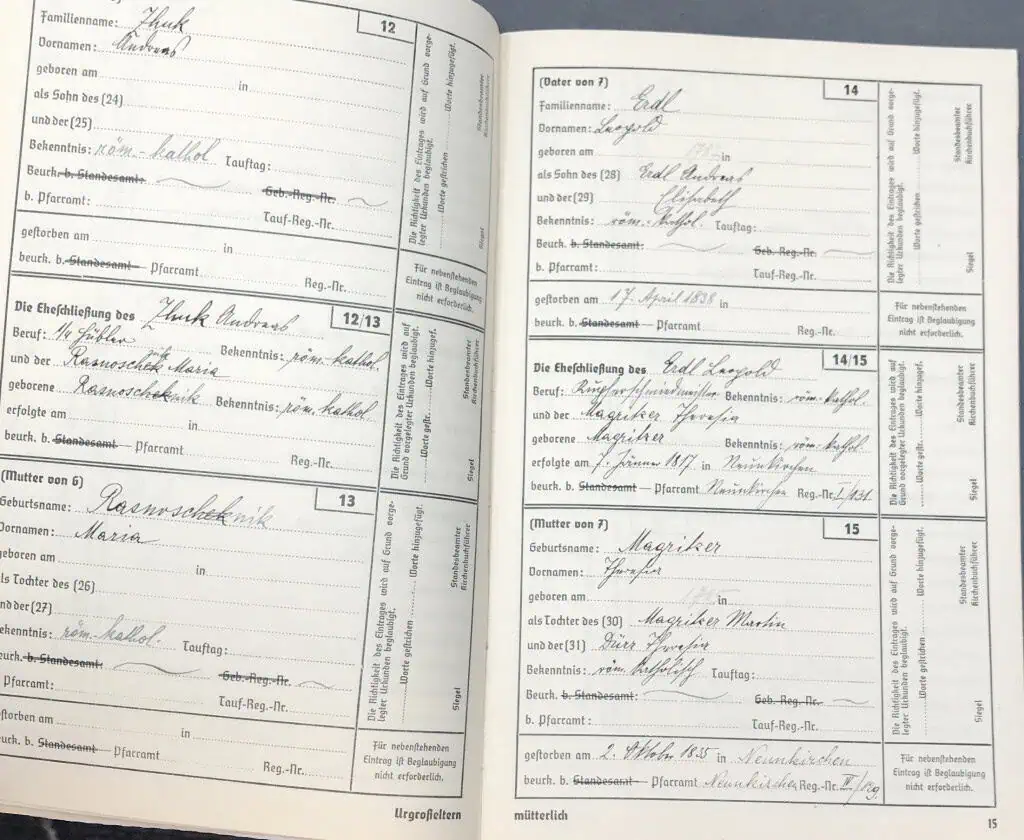 12
Familienname: Zhuk
Vornamen: Andreas
geboren am in
als Sohn des (24)
und der (25)
Bekenntnis: röm.-kathol Tauftag:
Beurk. b. Standesamt: Geb.-Reg.-Nr.
b. Pfarramt: Tauf-Reg.-Nr.
gestorben am in
beurk. b. Standesamt — Pfarramt Reg.-Nr.
Die Richtigkeit des Eintrages wird auf Grund vorge-
legter Urkunden beglaubigt.
Worte gestrichen Worte hinzugefügt.
Standesbeamter
Kirchenbuchführer
Siegel
Für nebenstehenden
Eintrag ist Beglaubigung
nicht erforderlich.
12/13
Die Eheschließung des Zhuk Andreas
Beruf: Bekenntnis: röm-kathol.
und der Maria
geborene Bekenntnis: röm. kathol.
erfolgte am in
beurk. b. Standesamt — Pfarramt Reg.-Nr.
Die Richtigkeit des Eintrages wird auf
Grund vorgelegter Urkunden beglaubigt.
Worte gestr. Worte hinzugefügt.
Standesbeamter
Kirchenbuchführer
Siegel
(Mutter von 6) 13
Geburtsname:
Vornamen: Maria
geboren am in
als Tochter des (26)
und der (27)
Bekenntnis: röm-kathol. Tauftag:
Beurk. b. Standesamt: Geb.-Reg.-Nr.
Pfarramt: Tauf-Reg.-Nr.
gestorben am in
beurk. b. Standesamt — Pfarramt Reg.-Nr.
Die Richtigkeit des Eintrages wird auf Grund vorge-
legter Urkunden beglaubigt.
Worte gestrichen Worte hinzugefügt.
Standesbeamter
Kirchenbuchführer
Siegel
Für nebenstehenden
Eintrag ist Beglaubigung
nicht erforderlich.
Urgroßeltern
(Vater von 7) 14
Familienname: Erdl
Vornamen: Leopold
geboren am in
als Sohn des (28) Erdl Andreas
und der (29) Elisabeth
Bekenntnis: röm.-kathol. Tauftag:
Beurk. b. Standesamt: Geb.-Reg.-Nr.
b. Pfarramt: Tauf-Reg.-Nr.
gestorben am 17. April 1838 in
beurk. b. Standesamt — Pfarramt Reg.-Nr.
Die Richtigkeit des Eintrages wird auf Grund vorge-
legter Urkunden beglaubigt.
Worte gestrichen Worte hinzugefügt.
Standesbeamter
Kirchenbuchführer
Siegel
Für nebenstehenden
Eintrag ist Beglaubigung
nicht erforderlich.
14/15
Die Eheschließung des Erdl Leopold
Beruf: Kupferschmiedmeister Bekenntnis: röm-kathol.
und der Magritzer Theresia
geborene Magritzer Bekenntnis: röm-kathol
erfolgte am 7. Jänner 1817 in Neunkirchen
beurk. b. Standesamt — Pfarramt Neunkirchen Reg.-Nr. I/131.
Die Richtigkeit des Eintrages wird auf
Grund vorgelegter Urkunden beglaubigt.
Worte gestr. Worte hinzugefügt.
Standesbeamter
Kirchenbuchführer
Siegel
(Mutter von 7) 15
Geburtsname: Magritzer
Vornamen: Theresia
geboren am in
als Tochter des (30) Magritzer Martin
und der (31) Dürr Theresia
Bekenntnis: röm. katholisch Tauftag:
Beurk. b. Standesamt: Geb. Reg.-Nr.
b. Pfarramt: Tauf-Reg.-Nr.
gestorben am 2. Oktober 1835 in Neunkirchen
beurk. b. Standesamt — Pfarramt Neunkirchen Reg.-Nr. IV/129.
Die Richtigkeit des Eintrages wird auf Grund vorge-
legter Urkunden beglaubigt.
Worte gestrichen Worte hinzugefügt.
Standesbeamter
Kirchenbuchführer
Siegel
Für nebenstehenden
Eintrag ist Beglaubigung
nicht erforderlich.
mütterlich
15